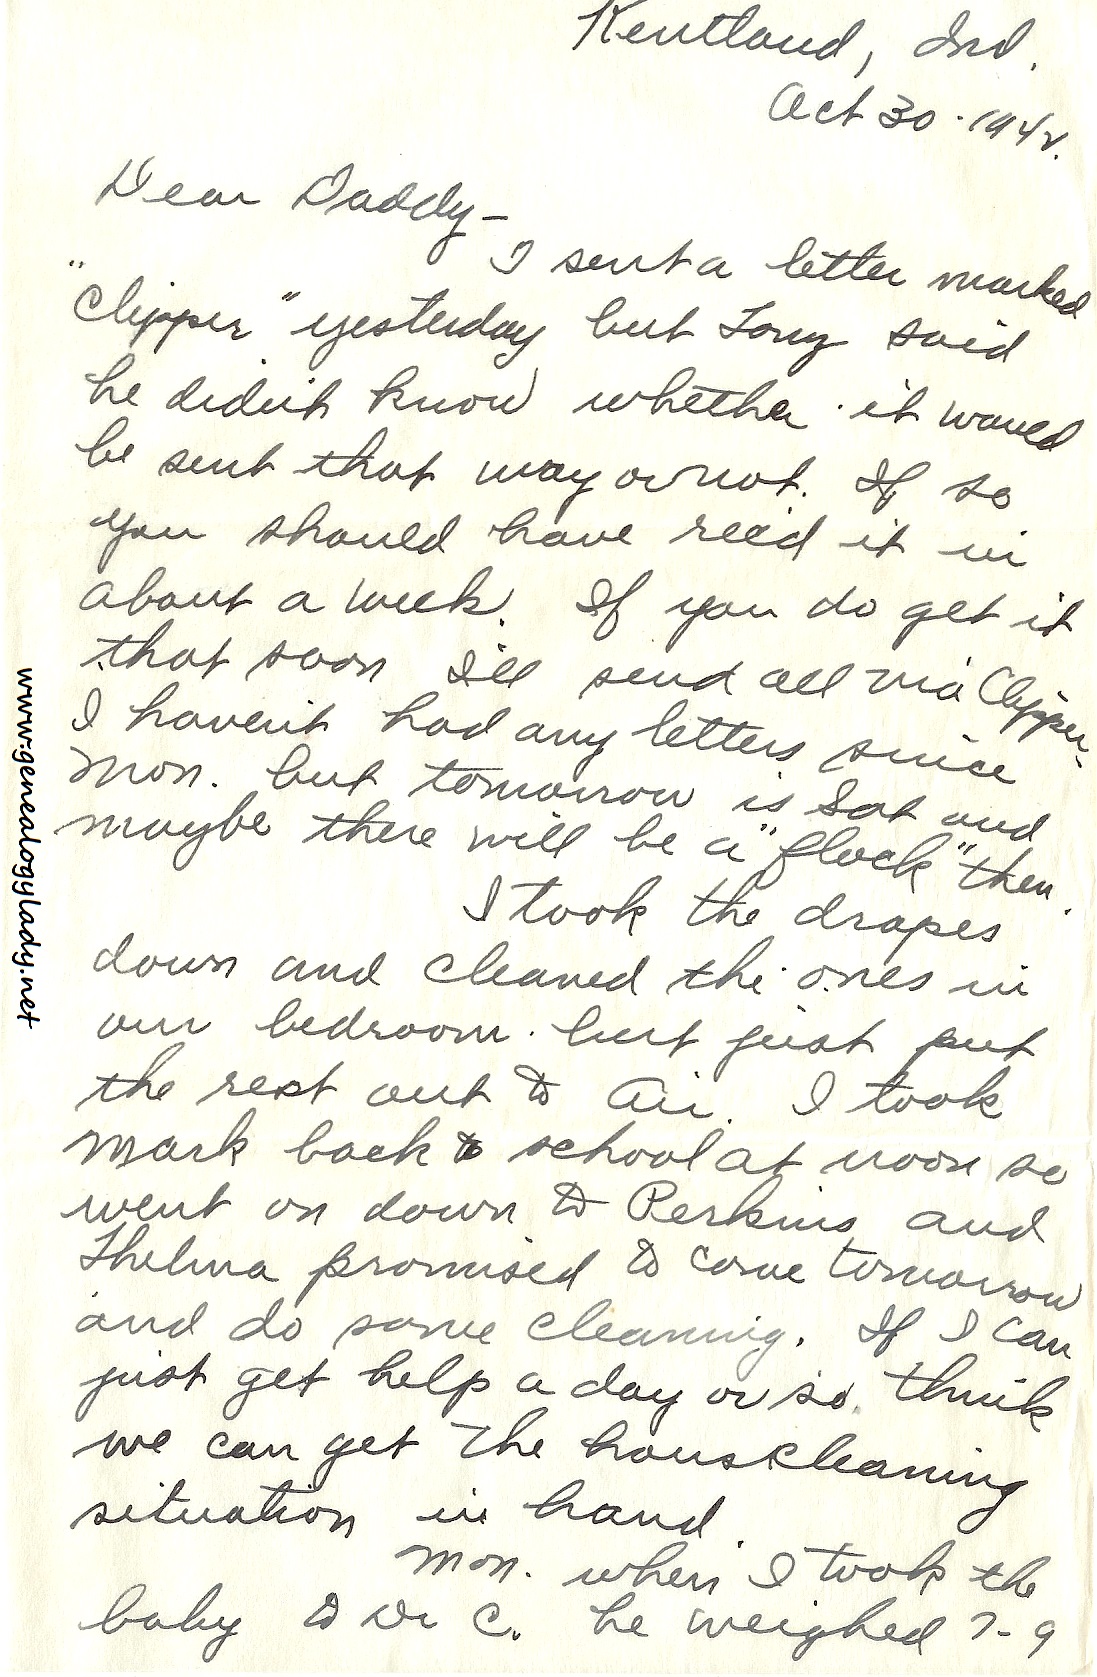 Kentland, Ind.
Oct 30 - 1942.
Dear Daddy -
I sent a letter marked
"Clipper" yesterday but Tony said
he didn't know whether it would
be sent that way or not. If so
you should have rec'd it in
about a week. If you do get it
that soon I'll send all via Clipper.
I haven't had any letters since
Mon. but tomorrow is Sat and
maybe there will be a "flock" then.
I took the drapes
down and cleaned the ones in
our bedroom but just put
the rest out to air. I took
Mark back to school at noon so
went on down to Perkins and
Thelma promised to come tomorrow
and do some cleaning. If I can
just get help a day or so, think
we can get the housecleaning
situation in hand.
Mon. when I took the
baby to Dr C. he weighed 7-9
www.genealogylady.net